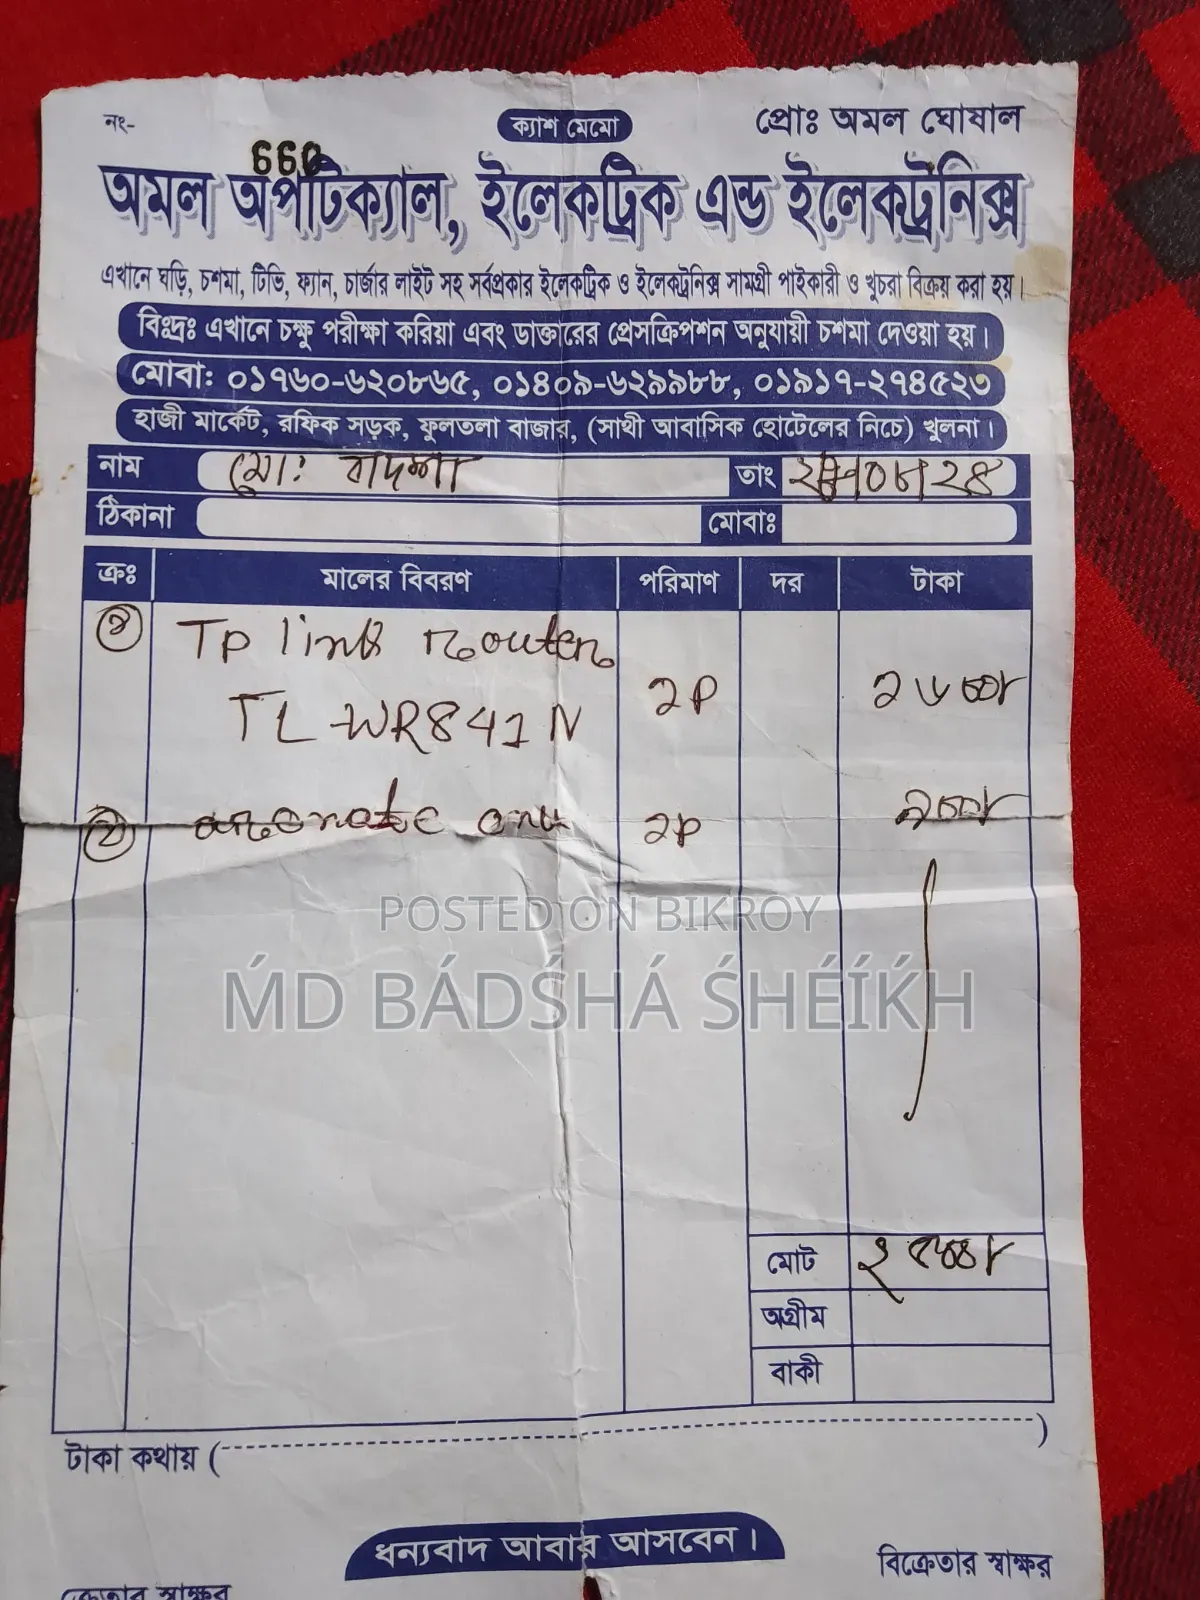 নং-
ক্যাশ মেমো
প্রোঃ অমল ঘোষাল
660
অমল অপটিক্যাল, ইলেকট্রিক এন্ড ইলেকট্রনিক্স
এখানে ঘড়ি, চশমা, টিভি, ফ্যান, চার্জার লাইট সহ সর্বপ্রকার ইলেকট্রিক ও ইলেকট্রনিক্স সামগ্রী পাইকারী ও খুচরা বিক্রয় করা হয়।
বিঃদ্রঃ এখানে চক্ষু পরীক্ষা করিয়া এবং ডাক্তারের প্রেসক্রিপশন অনুযায়ী চশমা দেওয়া হয়।
মোবা: ০১৭৬০-৬২০৮৬৫, ০১৪০৯-৬২৯৯৮৮, ০১৯১৭-২৭৪৫২৩
হাজী মার্কেট, রফিক সড়ক, ফুলতলা বাজার, (সাথী আবাসিক হোটেলের নিচে) খুলনা।
নাম মো: বাদশা তাং
ঠিকানা মোবাঃ
ক্রঃ মালের বিবরণ পরিমাণ দর টাকা
TP link Router
TL-WR841N ১P
onu ১P
POSTED ON BIKROY
ḾD BÁDŚHÁ ŚHÉÍḰH
মোট
অগ্রীম
বাকী
টাকা কথায় ( )
ধন্যবাদ আবার আসবেন।
বিক্রেতার স্বাক্ষর
ক্রেতার স্বাক্ষর